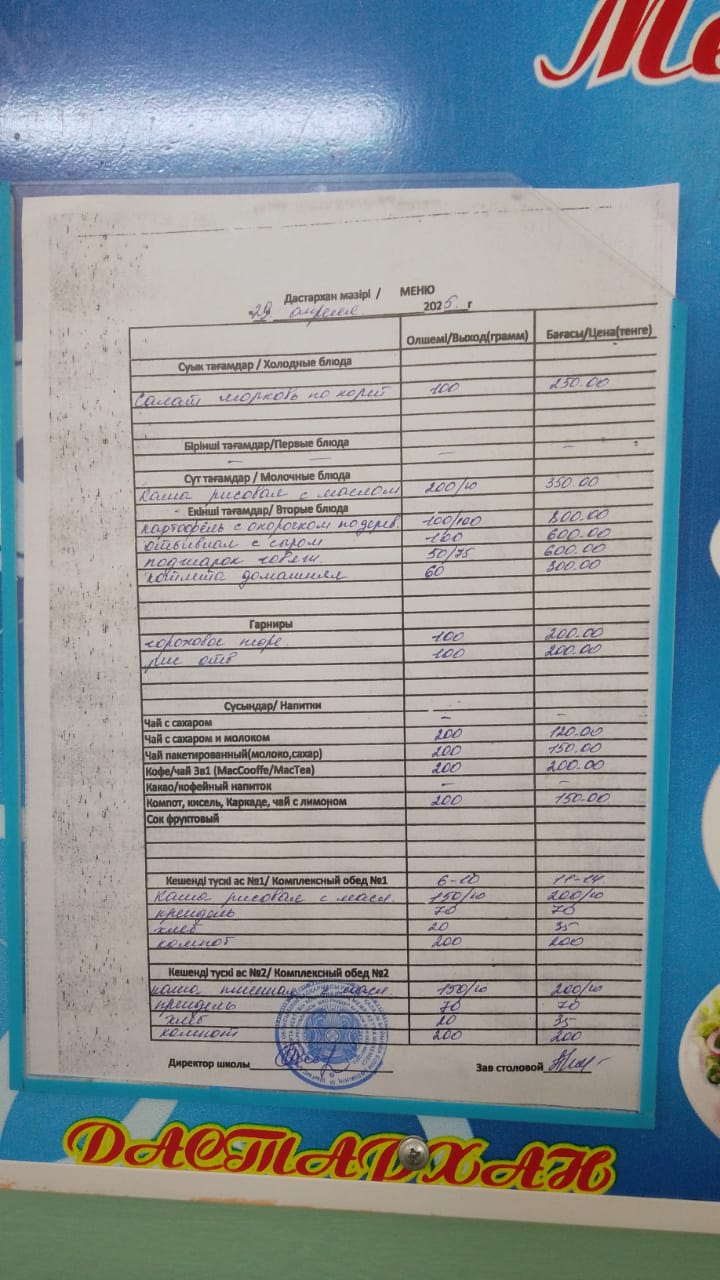 Ме
Дастархан мәзірі / МЕНЮ
"29" апреля 2025 г
Олшемі/Выход(грамм) Бағасы/Цена(тенге)
Суык тағамдар / Холодные блюда
Салат морковь по корей 100 250.00
Бірінші тағамдар/Первые блюда — —
— —
Сүт тағамдар / Молочные блюда
Каша рисовая с маслом 200/10 350.00
Екінші тағамдар/ Вторые блюда
картофель с окорочком по дерев. 100/100 800.00
отбивная с сыром 100 600.00
поджарок говяж. 50/75 600.00
котлета домашняя 60 300.00
Гарниры
гороховое пюре. 100 200.00
рис отв 100 200.00
Сусындар/ Напитки
Чай с сахаром — —
Чай с сахаром и молоком 200 120.00
Чай пакетированный(молоко,сахар) 200 150.00
Кофе/чай 3в1 (MacCooffe/MacTea) 200 200.00
Какао/кофейный напиток — —
Компот, кисель, Каркаде, чай с лимоном 200 150.00
Сок фруктовый
Кешенді тускі ас №1/ Комплексный обед №1 6-10 11-14
Каша рисовая с масл. 150/10 200/10
крендель 70 70
хлеб 20 35
компот 200 200
Кешенді тускі ас №2/ Комплексный обед №2
каша пшенная с масл 150/10 200/10
крендель 70 70
хлеб 20 35
компот 200 200
Директор школы Зав столовой
ДАСТАРХАН